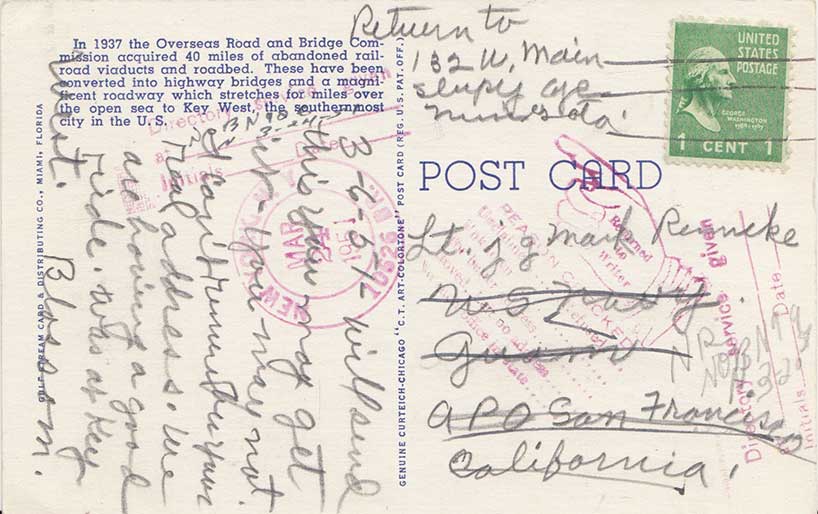 In 1937 the Overseas Road and Bridge Com-
mission acquired 40 miles of abandoned rail-
road viaducts and roadbed. These have been
converted into highway bridges and a magni-
ficent roadway which stretches for miles over
the open sea to Key West, the southernmost
city in the U.S.
Return to
132 W. Main
sleepy eye
minnesota
UNITED
STATES
POSTAGE
GEORGE
WASHINGTON
1789-1797
1 CENT 1
POST CARD
GULF STREAM CARD & DISTRIBUTING CO., MIAMI, FLORIDA
GENUINE CURTEICH-CHICAGO "C.T. ART-COLORTONE" POST CARD (REG. U.S. PAT. OFF.)
3-6-51- will send
this you may get
it - you may not.
I can't remember your
real address. We
are having a good
ride. Was at Key
West.
Blossom.
Lt. j g Mark Renneke
U S Navy.
Guam
APO San Francisco
California.
Returned
to
Writer
REASON CHECKED
MAR
24
1951
10526 BR.
Directory Service Given
Date
Initials
Initials